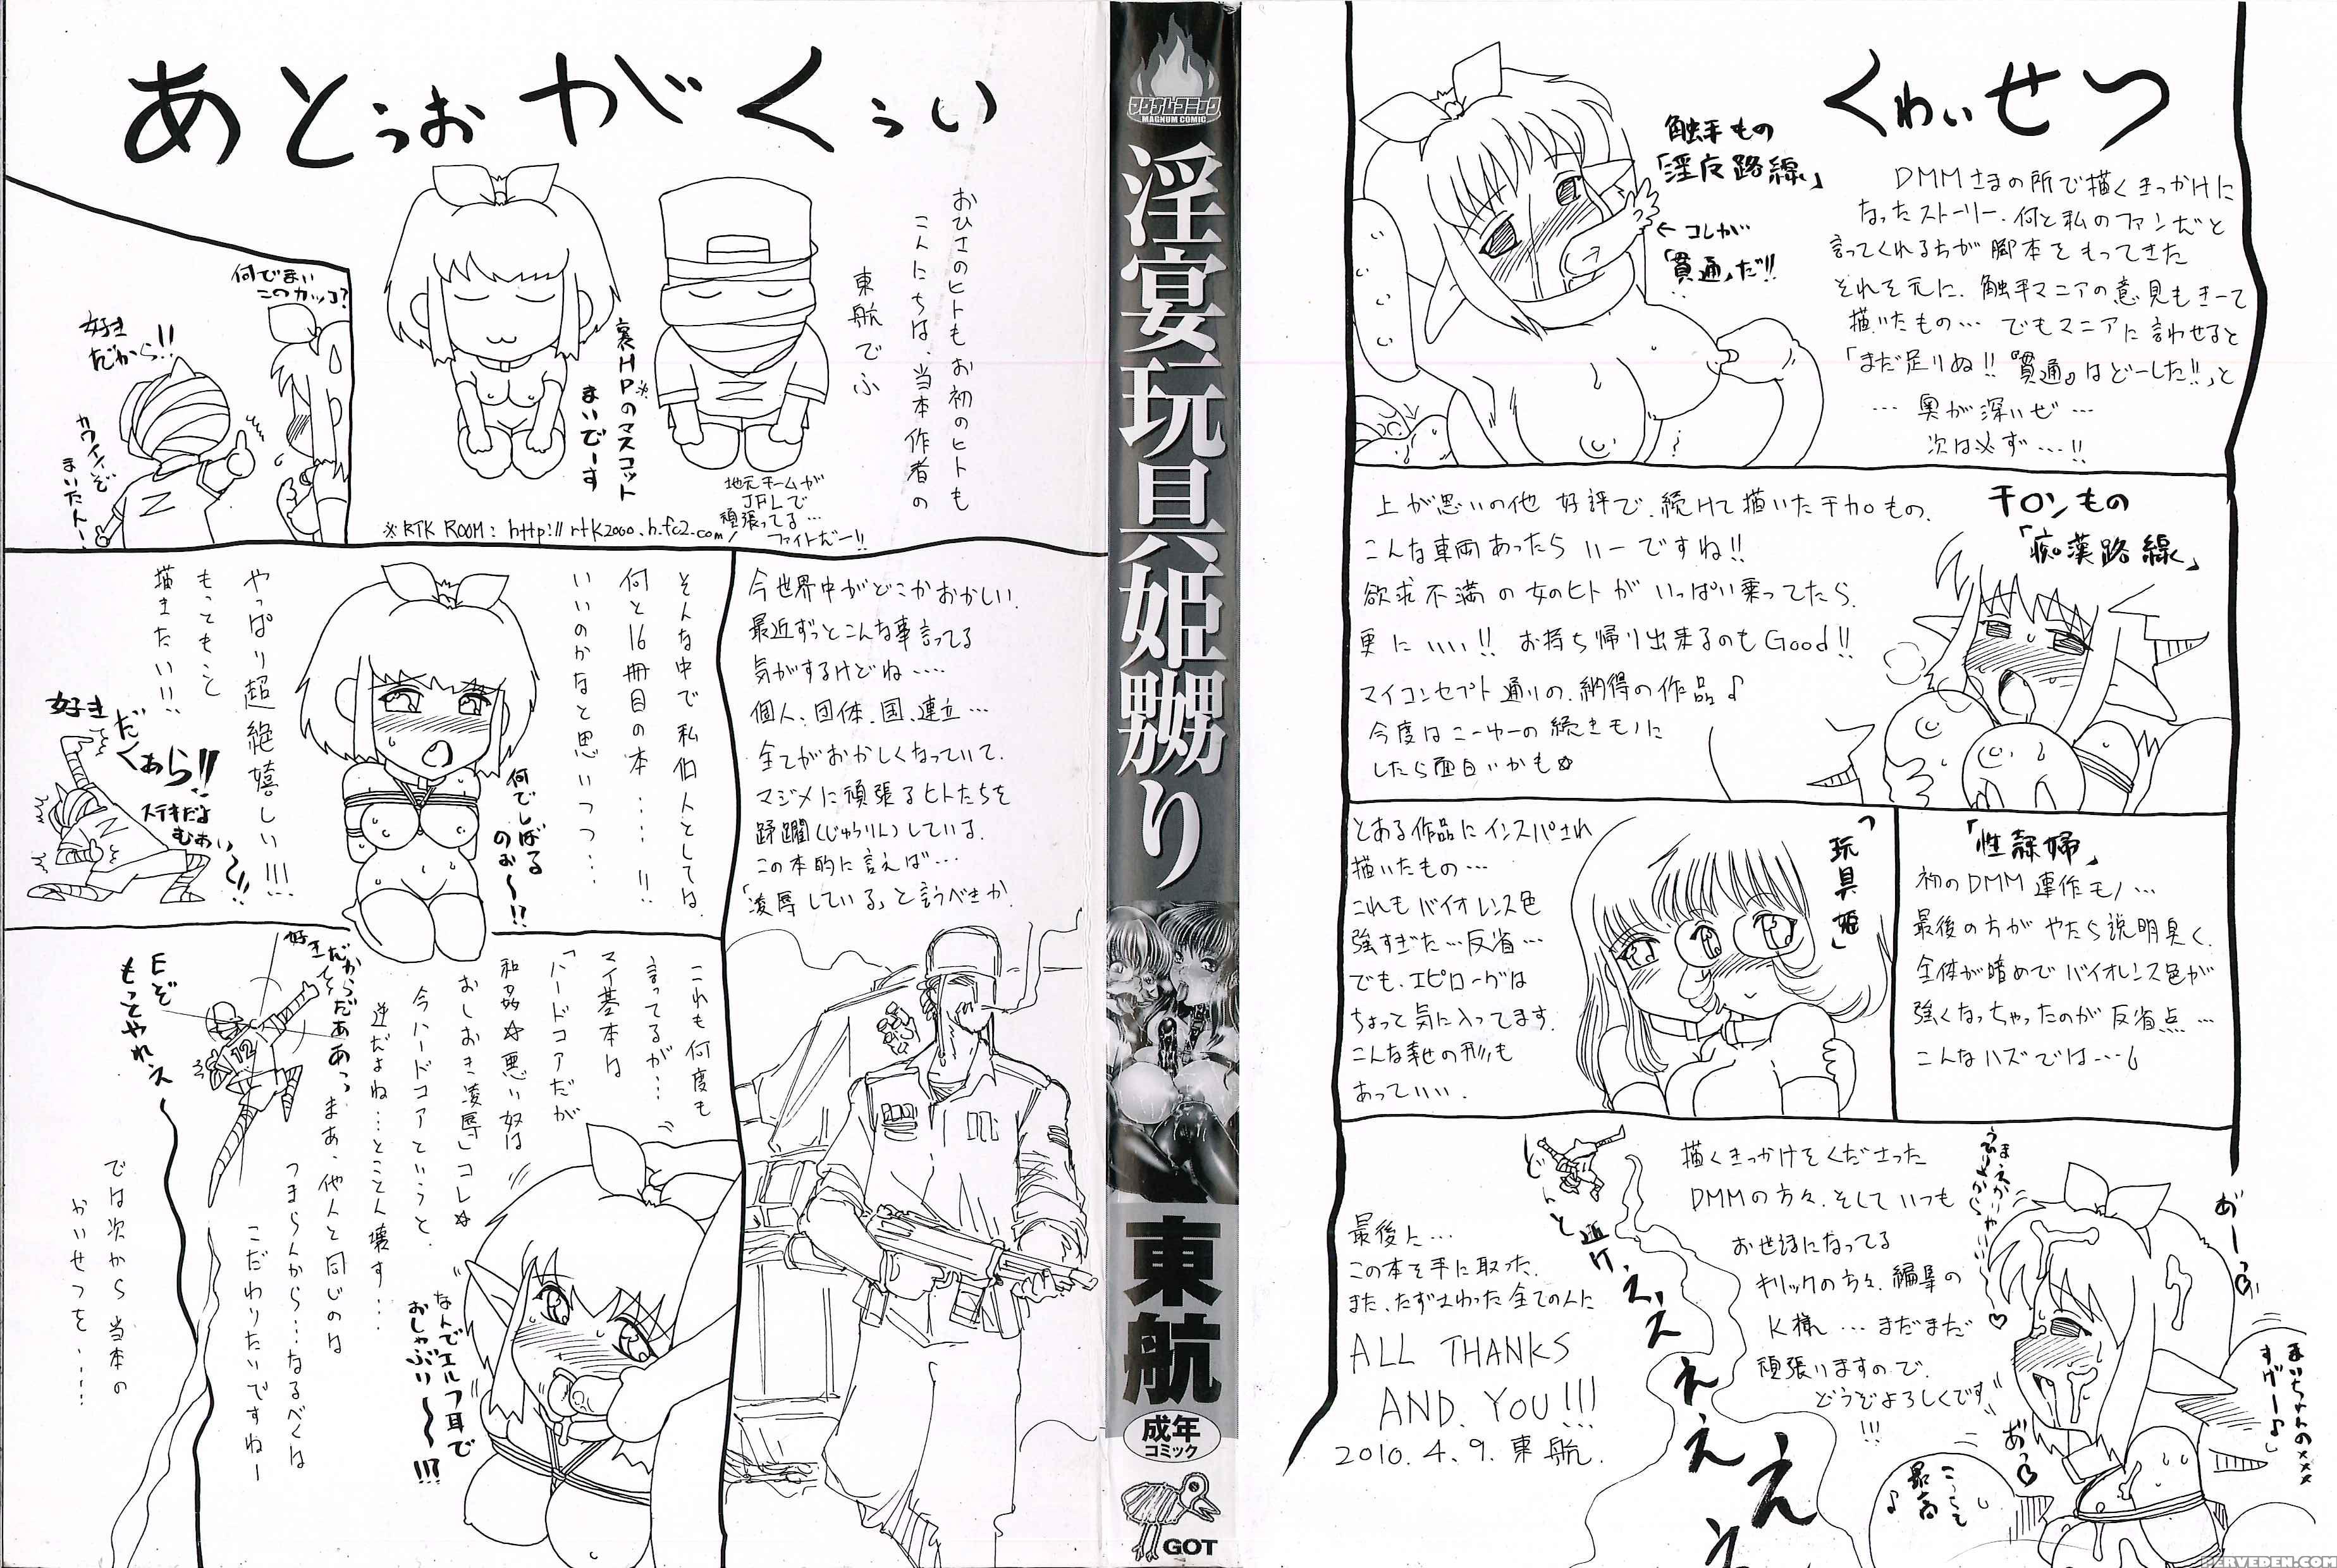 あとぅおがくぅい
おひさのヒトもお初のヒトも
こんにちは、当本作者の
東航でふ
裏HP※のマスコット
まいでーす
地元チームが
JFLで
頑張ってる…
ファイトだー!!
※RTK ROOM: http://rtk2000.h.fc2.com/
何でまい
このカッコ?
好き
だから!!
カワイイぞ
まいたん!
今世界中がどこかおかしい.
最近ずっとこんな事言ってる
気がするけどね….
個人、団体、国、連立…
全てがおかしくなっていて、
マジメに頑張るヒトたちを
蹂躙(じゅうりん)している.
この本的に言えば…
「凌辱している」と言うべきか.
そんな中で私個人としては、
何と16冊目の本…!!
いいのかなと思いつつ…
やっぱり超絶嬉しい!!!
もっともこと
描きたい!!
何でしばる
のぉ〜!?
好き
だ
くぁら!!
ステキだよ
むぁい〜!!
これも何度も
言ってるが…
マイ基本は
「ハードコアだが
和姦☆悪い奴は
おしおき凌辱」コレ☆
今ハードコアというと、
逆だよね…とことん壊す…
まあ、他人と同じのは
つまらんから…なるべくは
こだわりたいですねー
では次から当本の
かいせつを…
好きだからだぁあっ
Eぞ
もっとやれ.ス
12
なんでエルフ耳で
おしゃぶり〜!!?
マグナムコミック
MAGNUM COMIC
淫宴玩具姫嬲り
東航
成年
コミック
GOT
くわぃせつ
触手もの
「淫辱路線」
←コレが
「貫通」だ!!
DMMさまの所で描くきっかけに
なったストーリー.何と私のファンだと
言ってくれる方が脚本をもってきた
それを元に、触手マニアの意見もきーて
描いたもの…でもマニアに言わせると
「まだ足りぬ!!『貫通』はどーした!!」と
…奥が深いぜ…
次は必ず…!!
チロンもの
「痴漢路線」
上が思いの他好評で、続けて描いたチカ○もの、
こんな車両あったらいーですね!!
欲求不満の女のヒトがいっぱい乗ってたら、
更にいい!!お持ち帰り出来るのもGood!!
マイコンセプト通りの、納得の作品♪
今度はこーゆーの続きモノに
したら面白いかも☆
「玩具姫」
とある作品にインスパされ
描いたもの…
これもバイオレンス色
強すぎた…反省…
でも、エピローグは
ちょっと気に入ってます.
こんな幸せの形も
あっていい.
「性隷婦」
初のDMM連作モノ…
最後の方がやたら説明臭く、
全体が暗めでバイオレンス色が
強くなっちゃったのが反省点…
こんなハズでは…
描くきっかけをくださった
DMMの方々、そしていつも
お世話になってる
キリックの方々、編集の
K様…まだまだ
頑張りますので、
どうぞよろしくです
!!!
どんと逃げ
ええええええ
最後に…
この本を手に取った、
また、たずさわった全ての人に
ALL THANKS
AND YOU!!!
2010.4.9.東航.
おーっ
まいちゃんの×××
すげー♪」
おっ
こってて
最高
♪
HERVEDEN.COM